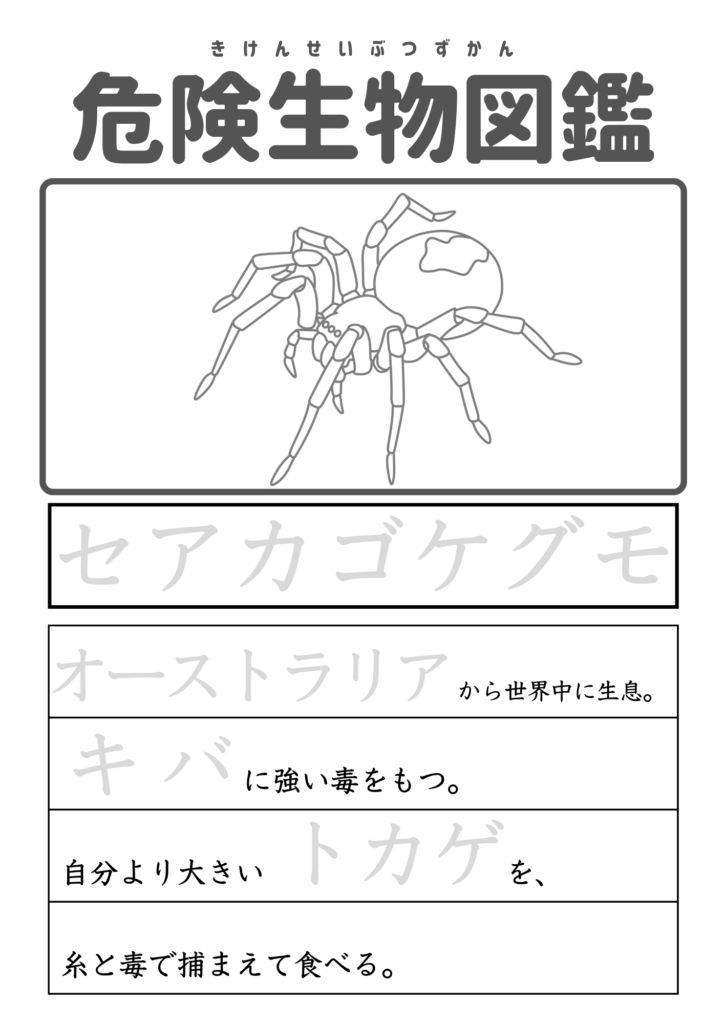 きけんせいぶつずかん
危険生物図鑑
セアカゴケグモ
オーストラリアから世界中に生息。
キバに強い毒をもつ。
自分より大きい トカゲを、
糸と毒で捕まえて食べる。